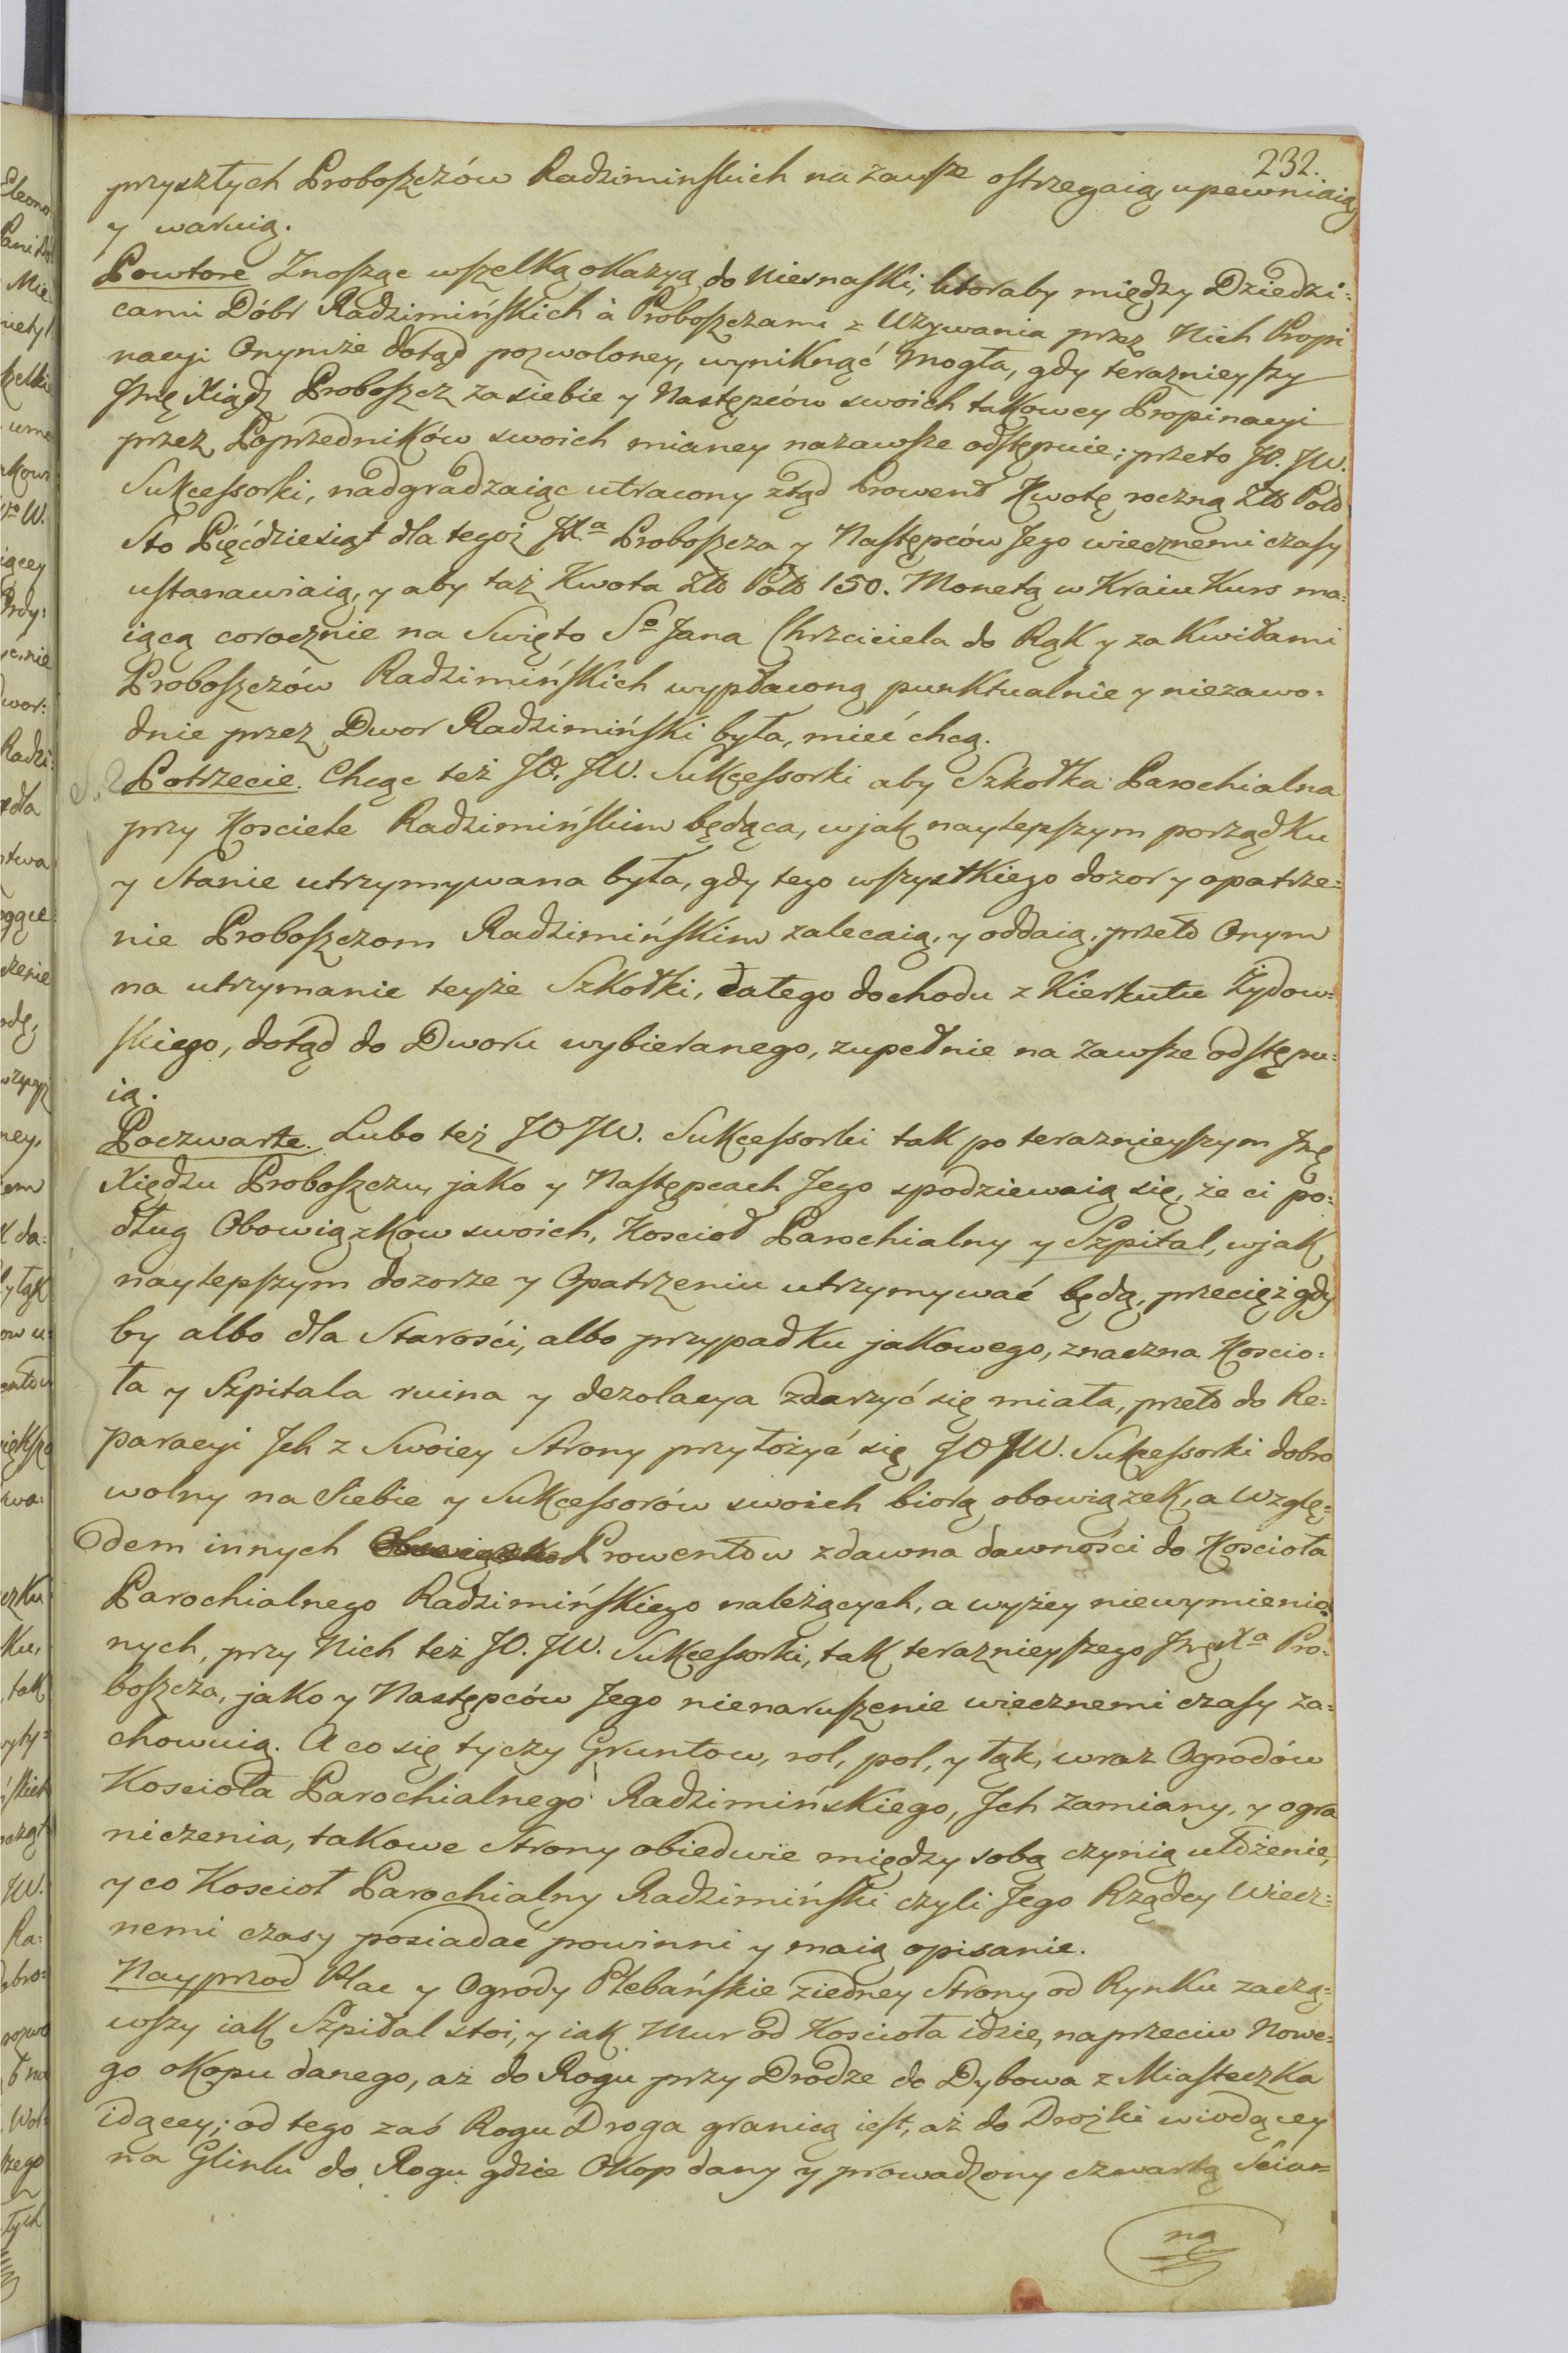 232.
przyszłych Proboszczów Radziminskich na zawsze ostrzegaią upewniaią
y waruią.
Powtore Znosząc wszelką okazyą do Niesnaski, ktoraby między Dziedzi:
cami Dóbr Radzimińskich à Proboszczami z Używania przez Nich Propi
nacyi Onymże dotąd pozwoloney, wyniknąć mogła, gdy teraznieyszy
Jmę Xiądz Proboszcz za siebie y Następców swoich takowey Propinacyi
przez Poprzedników swoich mianey nazawsze odstępuie; przeto JO. JW.
Sukcessorki, nadgradzaiąc utracony ztąd Prowent Kwotę roczną Złł Poll
Sto Pięćdziesiąt dla tegoż JXa Proboszcza y Następców Jego wiecznemi czasy
ustanawiaią, y aby taż Kwota Złł Poll 150. Monetą w Kraiu Kurs ma:
iącą corocznie na Swięto So Jana Chrzciciela do Rąk y za Kwitami
Proboszczów Radzimińskich wypłaconą punktualnie y niezawo:
dnie przez Dwor Radzimiński była, mieć chcą.
Potrzecie. Chcąc też JO. JW. Sukcessorki aby Szkołka Parochialna
przy Kosciele Radzimińskim będąca, w jak naylepszym porządku
y Stanie utrzymywana była, gdy tego wszystkiego dozor y opatrze:
nie Proboszczom Radzimińskim zalecaią, y oddaią, przeto Onym
na utrzymanie teyże Szkołki, całego dochodu z Kierkutu Żydow:
skiego, dotąd do Dworu wybieranego, zupełnie na zawsze odstępu:
ią.
Poczwarte. Lubo też JO JW. Sukcessorki tak po teraznieyszym Jmę
Xiędzu Proboszczu, jako y Następcach Jego spodziewaią się, że ci po:
dług Obowiązków swoich, Koscioł Parochialny y Szpital, w jak
naylepszym dozorze y Opatrzeniu utrzymywać będą, przecięż gdy
by albo dla Starości, albo przypadku jakowego, znaczna Koscio:
ła y Szpitala ruina y dezolacya zdarzyć się miała, przeto do Re:
paracyi Jch z Swoiey Strony przyłożyć się JO JW. Sukcessorki dobro
wolny na Siebie y Sukcessorów swoich biorą obowiązek, a wzglę:
dem innych Prowentow zdawna dawności do Koscioła
Parochialnego Radzimińskiego należących, a wyżey niewymienio
nych, przy Nich też JO. JW. Sukcessorki, tak teraznieyszego Jmę Xa Pro:
boszcza, jako y Następców Jego nienaruszenie wiecznemi czasy za:
chowuią. A co się tyczy Gruntow, rol, pol, y łąk, wraz Ogrodów
Koscioła Parochialnego Radzimińskiego, Jch zamiany, y ogra
niczenia, takowe Strony obiedwie między sobą czynią ułożenie,
y co Koscioł Parochialny Radzimiński czyli Jego Rządcy Wiecz:
nemi czasy posiadać powinni y maią opisanie.
Nayprzod Plac y Ogrody Plebańskie ziedney Strony od Rynku zaczą:
wszy iak Szpital stoi, y iak Mur od Koscioła idzie, naprzeciw Nowe:
go okopu danego, aż do Rogu przy Drodze do Dybowa z Miasteczka
idącey; od tego zaś Rogu Droga granicą iest, aż do Drożki wiodącey
na Glinki do Rogu gdzie Okop dany y prowadzony czwartą Ścian:
ną